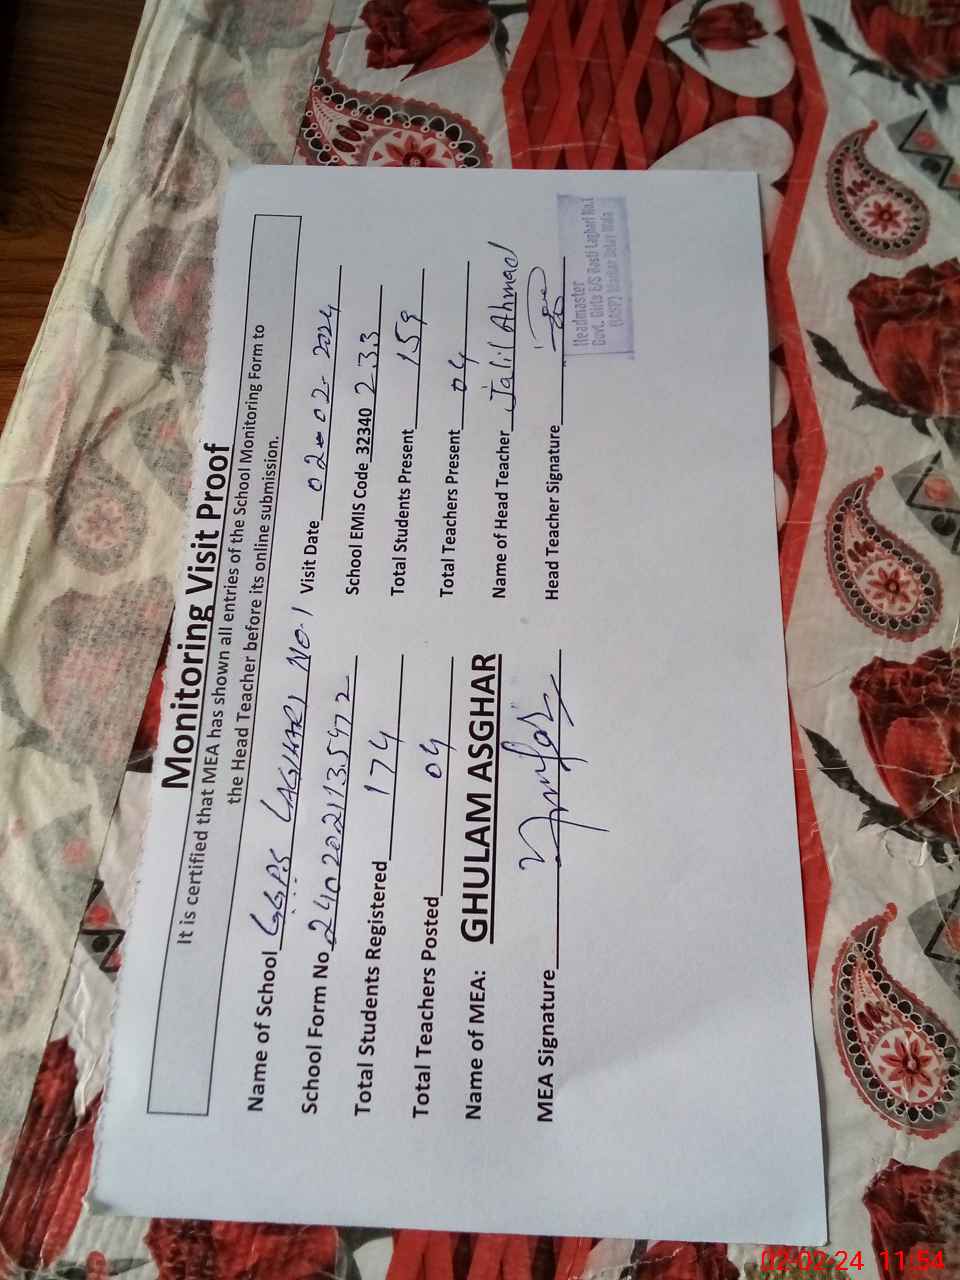 Monitoring Visit Proof
It is certified that MEA has shown all entries of the School Monitoring Form to
the Head Teacher before its online submission.
Name of School GGPS LAGHARI NO.1 Visit Date 02-02-2024
School Form No 2402021135972 School EMIS Code 32340 233
Total Students Registered 174 Total Students Present 159
Total Teachers Posted 04 Total Teachers Present 04
Name of MEA: GHULAM ASGHAR Name of Head Teacher Jalil Ahmad
MEA Signature Head Teacher Signature
Headmaster
Govt. Girls E/S Basti Laghari No.1
02-02-24 11:54